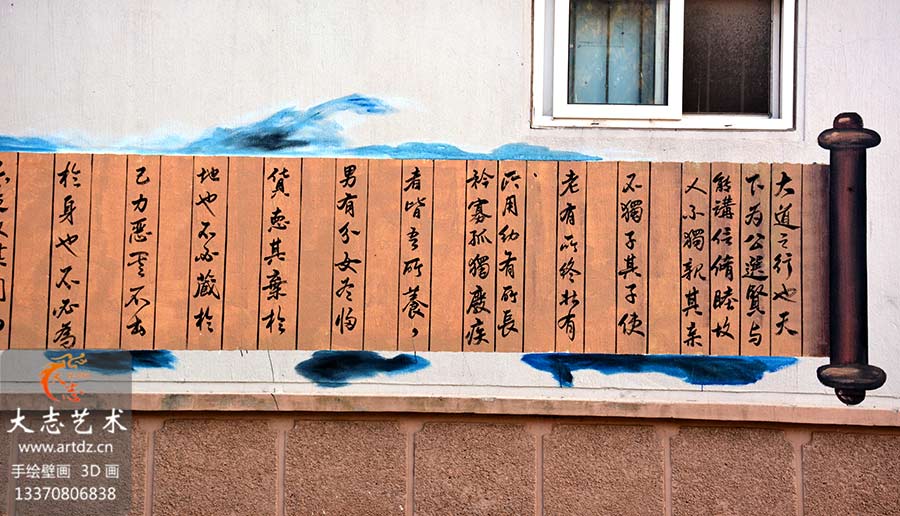 大道之行也天
下为公選賢与
能講信脩睦故
人不獨親其亲
不獨子其子使
老有所终壮有
所用幼有所長
矜寡孤獨廢疾
者皆吾所養
男有分女有归
貨恶其棄於
地也不必藏於
己力恶其不出
於身也不必為
大志艺术
www.artdz.cn
手绘壁画 3D画
13370806838